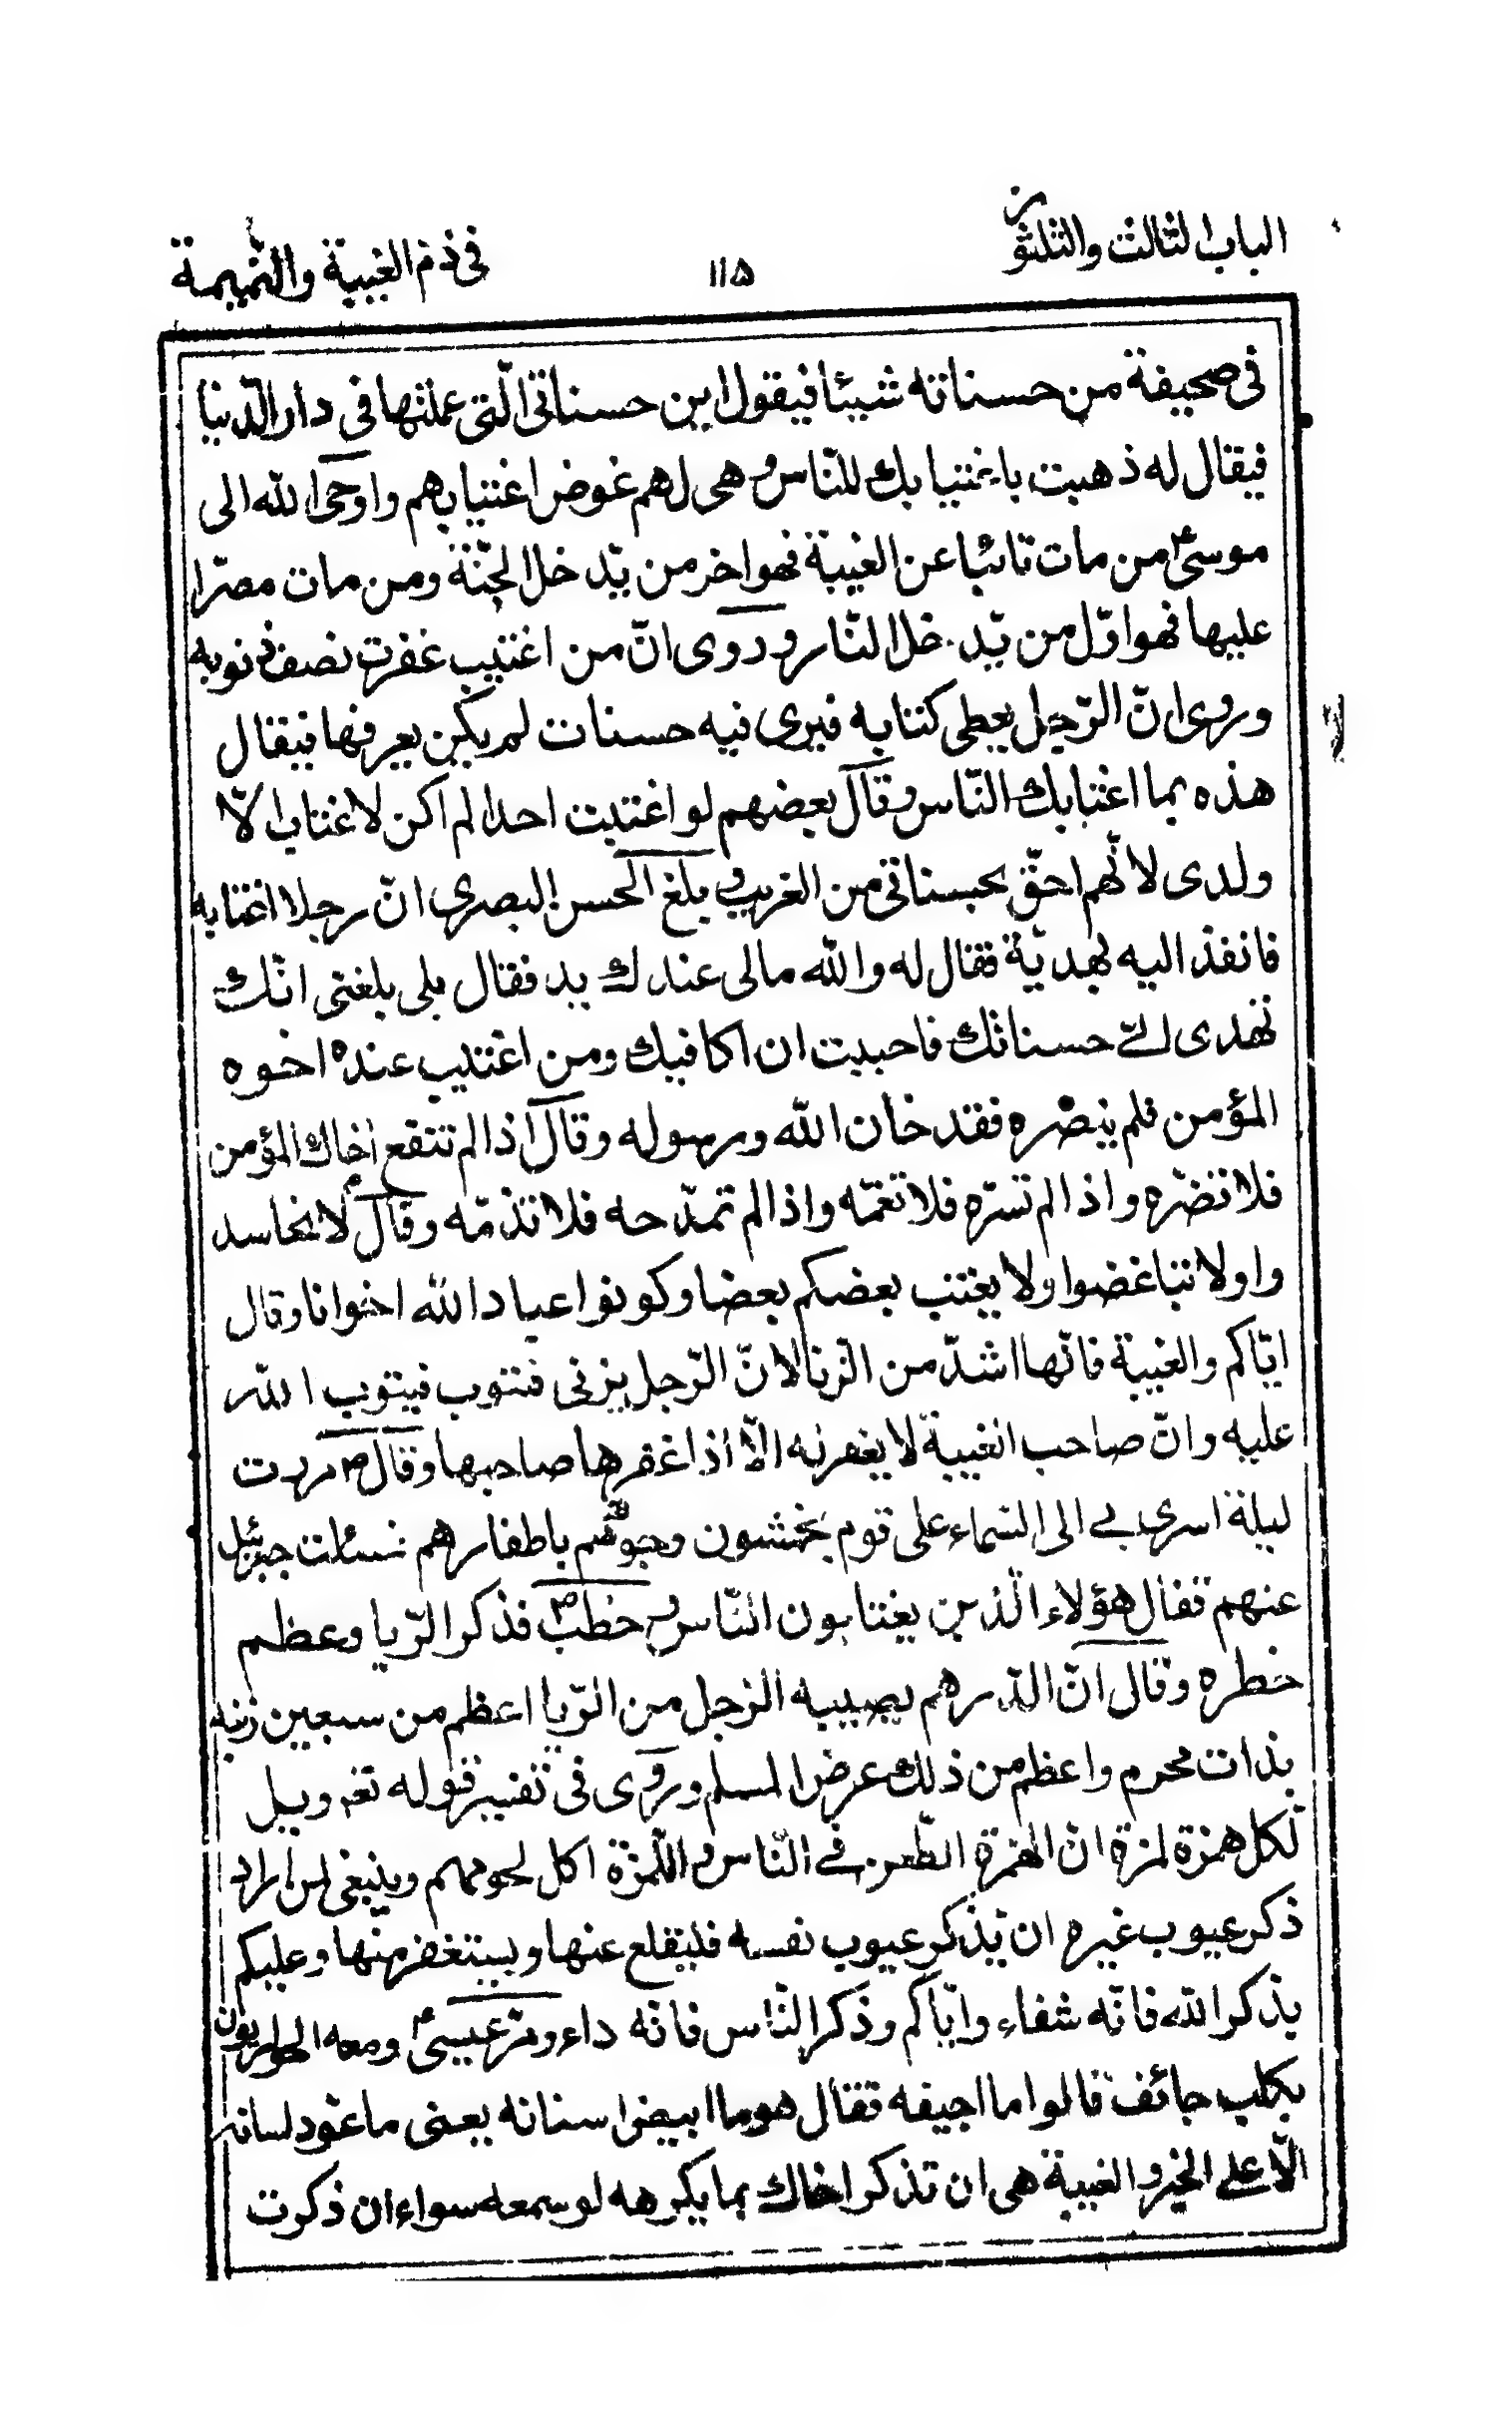 الباب الثالث والثلثون
١١٥
فى ذم الغيبة والنميمة
فى صحيفة من حسناته شيئا فيقول اين حسناتى الّتى عملتها فى دار الدّنيا
فيقال له ذهبت باغتيابك للنّاس وهى لهم عوض اغتيابهم واوحى الله الى
موسىؑ من مات تائبا عن الغيبة فهو اخر من يّدخل الجنّة ومن مات مصرّا
عليها فهو اوّل من يّدخل النّار وروى انّ من اغتيب غفرت نصف ذنوبه
وروى انّ الرّجل يعطى كتابه فيرى فيه حسنات لم يكن يعرفها فيقال
هذه بما اغتابك النّاس وقال بعضهم لو اغتبت احدا لم اكن لاغتاب الّا
ولدى لانّهم احقّ بحسناتى من الغريب وبلغ الحسن البصرى انّ رجلا اغتابه
فانفذ اليه بهديّة فقال له والله مالى عندك يد فقال بلى بلغنى انّك
تهدى الىّ حسناتك فاحببت ان اكافيك ومن اغتيب عنده اخوه
المؤمن فلم ينصره فقد خان الله ورسوله وقال اذا لم تنفع اخاك المؤمن
فلا تضرّه واذا لم تسّره فلا تغمّه واذا لم تمدّحه فلا تذمّه وقالؐ لا تحاسد
وا ولا تباغضوا ولا يغتب بعضكم بعضا وكونوا عباد الله اخوانا وقال
ايّاكم والغيبة فانّها اشدّ من الزّنا لانّ الرّجل يزنى فتتوب فيتوب الله
عليه وانّ صاحب الغيبة لا يغفر له الّا اذا غفرها صاحبها وقالؐ مررت
ليلة اسرى بى الى السّماء على قوم يخمشون وجوههم باظفارهم فسئلت جبرئيل
عنهم فقال هؤلاء الّذين يغتابون النّاس وخطبؐ فذكر الرّبا وعظم
خطره وقال انّ الدّرهم يصيبه الرّجل من الرّبا اعظم من سبعين زنية
بذات محرم واعظم من ذلك عرض المسلم وروى فى تفسير قوله تعم ويل
لّكل همزة لمزة انّ الهمزة الطّعن فى النّاس واللّمزة اكل لحومهم وينبغى لمن اراد
ذكر عيوب غيره ان يّذكر عيوب نفسه فليقلع عنها ويستغفر منها وعليكم
بذكر الله فانّه شفاء وايّاكم وذكر النّاس فانّه داء ومرّ عيسىؑ ومعه الحواريون
بكلب جائف قالوا ما اجيفه فقال هو ما ابيض اسنانه يعنى ما عوّد لسانه
الّا على الخير والغيبة هى ان تذكر اخاك بما يكرهه لو سمعه سواء ان ذكرت